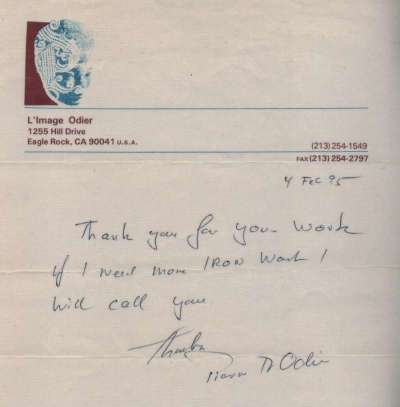 L'Image Odier
1255 Hill Drive
Eagle Rock, CA 90041 U.S.A.
(213) 254-1549
FAX (213) 254-2797
4 Feb 95
Thank you for your work
if I need more IRON work I
will call you
Thanks
Odier